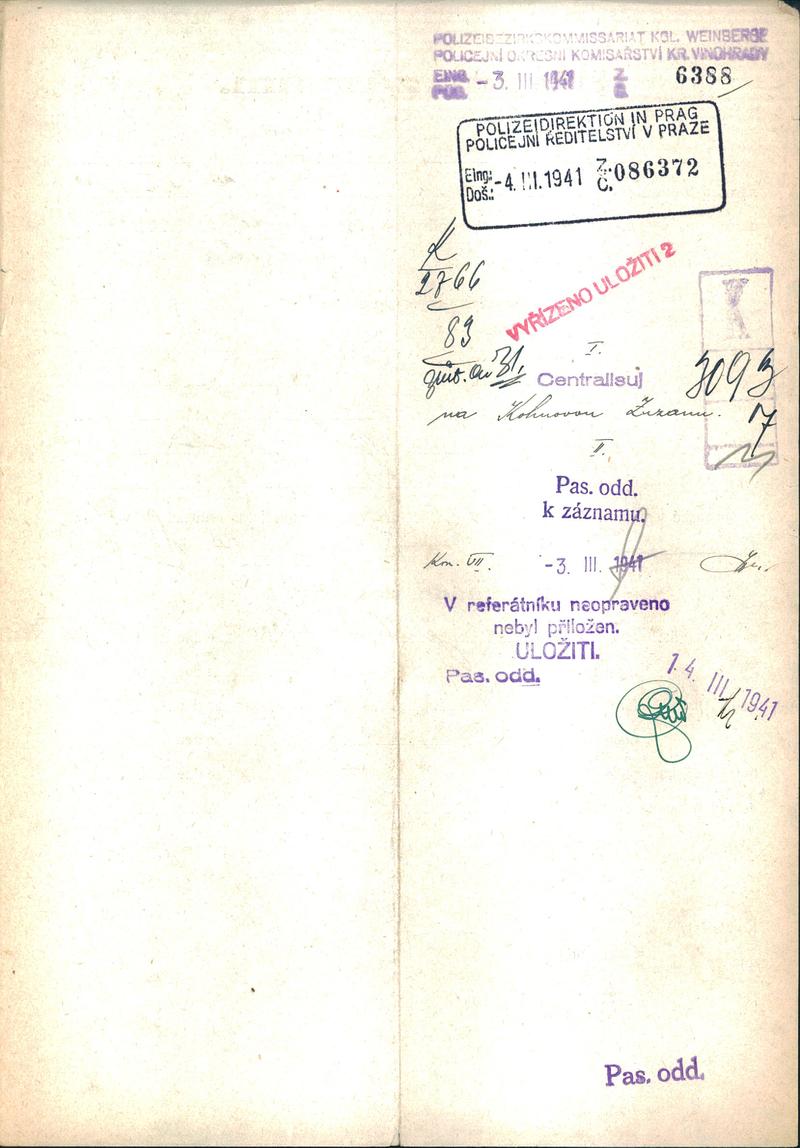 POLIZEIBEZIRKSKOMMISSARIAT KGL. WEINBERGE
POLICEJNÍ OKRESNÍ KOMISAŘSTVÍ KR. VINOHRADY
EING. -3. III 1941 Z. 6388
POLIZEIDIREKTION IN PRAG
POLICEJNÍ ŘEDITELSTVÍ V PRAZE
Eing: -4. III. 1941 Z. 086372
Doš.: Č.
K
2766
83
31.
VYŘÍZENO ULOŽITI 2
I.
Centralisuj
3093
na Kohnovou Zuzanu. 17
II.
Pas. odd.
k záznamu.
Kom. VII. -3. III. 1941
V referátníku neopraveno
nebyl přiložen.
ULOŽITI.
Pas. odd.
14. III 1941
Pas. odd.